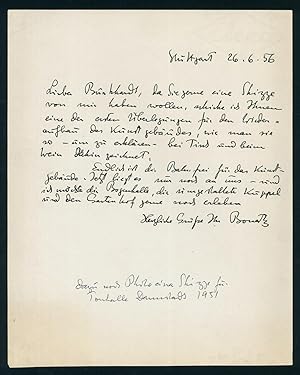 Stuttgart 26.6.56
Lieber Burkhardt, da Sie gerne eine Skizze
von mir haben wollen, schicke ich Ihnen
eine der ersten Überlegungen für den Wieder-
aufbau des Kunstgebäudes, wie man sie
so – um zu erklären – bei Tisch und beim
Wein dahin zeichnet.
Endlich ist die Bahn frei für das Kunst-
gebäude. Jetzt liegt es nur noch an uns – und
ich möchte die Bogenhalle die umgestaltete Kuppel
und den Gartenhof gerne noch erleben
Herzliche Grüße Ihr Bonatz
dazu noch eine Skizze für
Tonhalle 1951